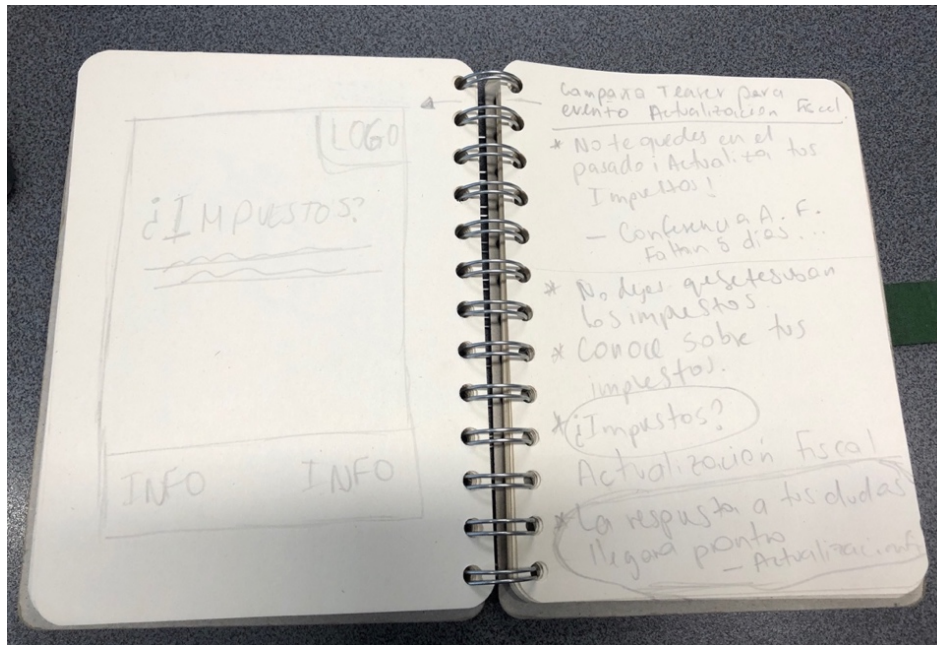 LOGO
¿IMPUESTOS?
INFO INFO
Campaña Teaser para
evento Actualización Fiscal
* No te quedes en el
pasado ¡Actualiza tus
Impuestos!
- Conferencia A. F.
Faltan 5 días...
* No dejes que te suban
los impuestos.
* Conoce sobre tus
impuestos.
* ¿Impuestos?
Actualización fiscal
* La respuesta a tus dudas
llegará pronto
- Actualización